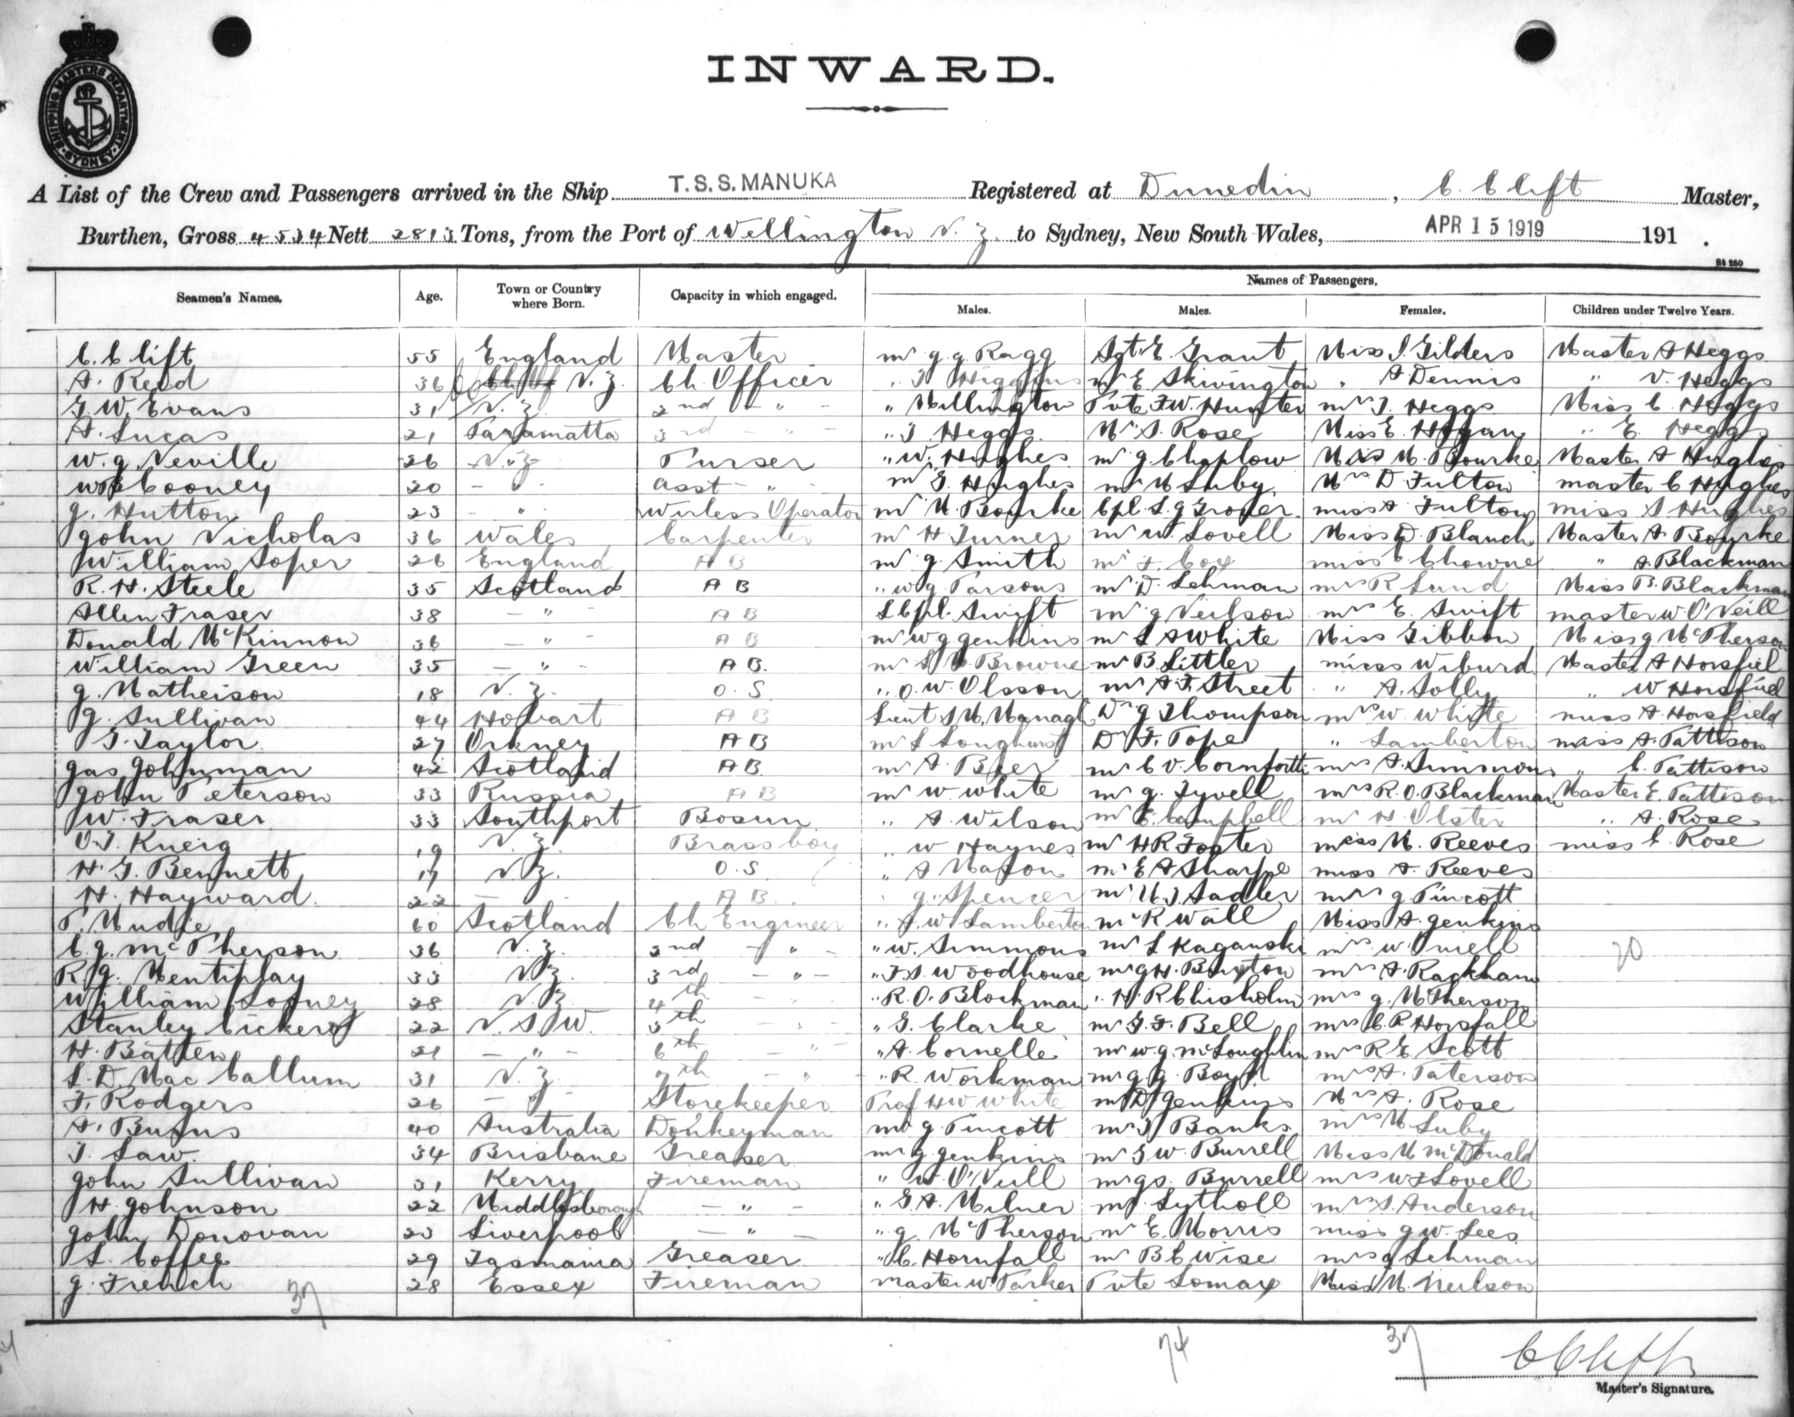 SHIPPING MASTERS DEPARTMENT SYDNEY
INWARD.
A List of the Crew and Passengers arrived in the Ship T.S.S. MANUKA Registered at Dunedin, C. Clift Master,
Burthen, Gross 4534 Nett 2813 Tons, from the Port of Wellington N.Z. to Sydney, New South Wales, APR 15 1919 191 .
Names of Passengers.
Seamen's Names. Age. Town or Country where Born. Capacity in which engaged. Males. Males. Females. Children under Twelve Years.
C. Clift 55 England Master Mr J. J. Ragg Sgt E. Grant Miss I. Gilders Master A Heggs
A. Reed 36 N.Z. Ch Officer " Higgins Mr E Skivington " A Dennis " V. Heggs
Evans 31 N.Z. 2nd " " Millington Pvte F.W. Hunter Mrs T. Heggs Miss C. Heggs
A. Lucas 21 Paramatta 3rd " " T Heggs Mr S. Rose Miss E. Hogan " E. Heggs
W. J. Neville 26 N.Z. Purser " W. Hughes Mr J. Chaplow Miss M. Bourke Master A Hughes
Cooney 20 " Asst " Mr Hughes Mr M Luby Mrs D Fulton Master C Hughes
J. Hutton 23 " Wireless Operator Mr M Bourke Cpl S. J Miss A Fulton Miss S Hughes
John Nicholas 36 Wales Carpenter Mr H Turner Mr W. Lovell Miss D. Blanch Master A. Bourke
William Soper 26 England A B Mr J. Smith Mr F. Cox Miss C Chowne " A. Blackman
R. H. Steele 35 Scotland A B " W J Parsons Mr D. Lehman Mrs R Lund Miss B. Blackman
Allen Fraser 38 " A B L Cpl. Swift Mr J Neilson Mrs E. Swift Master W O'Neill
Donald McKinnon 36 " A B Mr W J Jenkins Mr L A White Miss Gibbon Miss J McPherson
William Green 35 " A B. Mr Browne Mr B. Littler Miss Wiburd Master A Horsfield
J. Matheison 18 N.Z. O.S. " O. W. Olsson Mr A. F. Street " A. Solly " W Horsfield
J. Sullivan 44 Hobart A B Lieut Mr J Thompson Mrs W White Miss A Horsfield
Taylor 27 Orkney A B Mr L Longhurst Dr F. Pope " Lamberton Miss A. Pattison
Jas Johnman 42 Scotland A B. Mr A. Mr C. V. Cornforth Mrs A. Simmons " C. Pattison
John Peterson 33 Russia A B Mr W. White Mr J. Tyrell Mrs R. O. Blackman Master E. Pattison
W. Fraser 33 Southport Bosun " A Wilson Mr E. Campbell H Olster " A. Rose
Kneig 19 N.Z. Brassboy " W Haynes Mr H R Foster Miss M. Reeves Miss C. Rose
H. Bennett 17 N.Z. O.S. " A Mason Mr E A Sharpe Miss A Reeves
H. Hayward 22 " A B. " J. Spencer Mr M. J Sadler Mrs J Pincott
P. Mudie 60 Scotland Ch Engineer " W Lamberton Mr R Wall Miss A. Jenkins
C. J. McPherson 36 N.Z. 2nd " " W. Simmons Mr L Kaganski Mrs W 20
R. J. Mentiplay 33 N.Z. 3rd " " Woodhouse Mr J H. Buxton Mrs A Rackham
William Looney 28 N.Z. 4th " R. O. Blackman " H. R Chisholm Mrs J. McPherson
Stanley 22 N.S.W. 5th " " Clarke Mr F. Bell Mrs C. R. Horsfall
H. Batten 21 " 6th " " A. Cornelle Mr W. J. McLoughlin Mrs R. E. Scott
L. D. MacCallum 31 N.Z. 7th " " R. Workman Mr J. J. Boyd Mrs A. Paterson
F. Rodgers 26 " Storekeeper Prof H W White Mr D Jenkins Mrs A. Rose
A. Burns 40 Australia Donkeyman Mr J. Pincott Mr Banks Mrs M Luby
Law 34 Brisbane Greaser Mr J Jenkins Mr W. Burrell Miss M McDonald
John Sullivan 31 Kerry Fireman " W O'Neill Mr Js. Burrell Mrs W F Lovell
H. Johnson 22 Middlesborough " " A. Milner Mr Lytholl Mrs S. Anderson
John Donovan 23 Liverpool " " J McPherson Mr E. Morris Miss J W. Lees
L. Coffee 29 Tasmania Greaser " C. Horsfall Mr B C Wise Mrs J Lehman
J. French 28 Essex Fireman Master W Parker Pvte Lomax Miss M. Neilson
37
74 37 C Clift
Master's Signature.